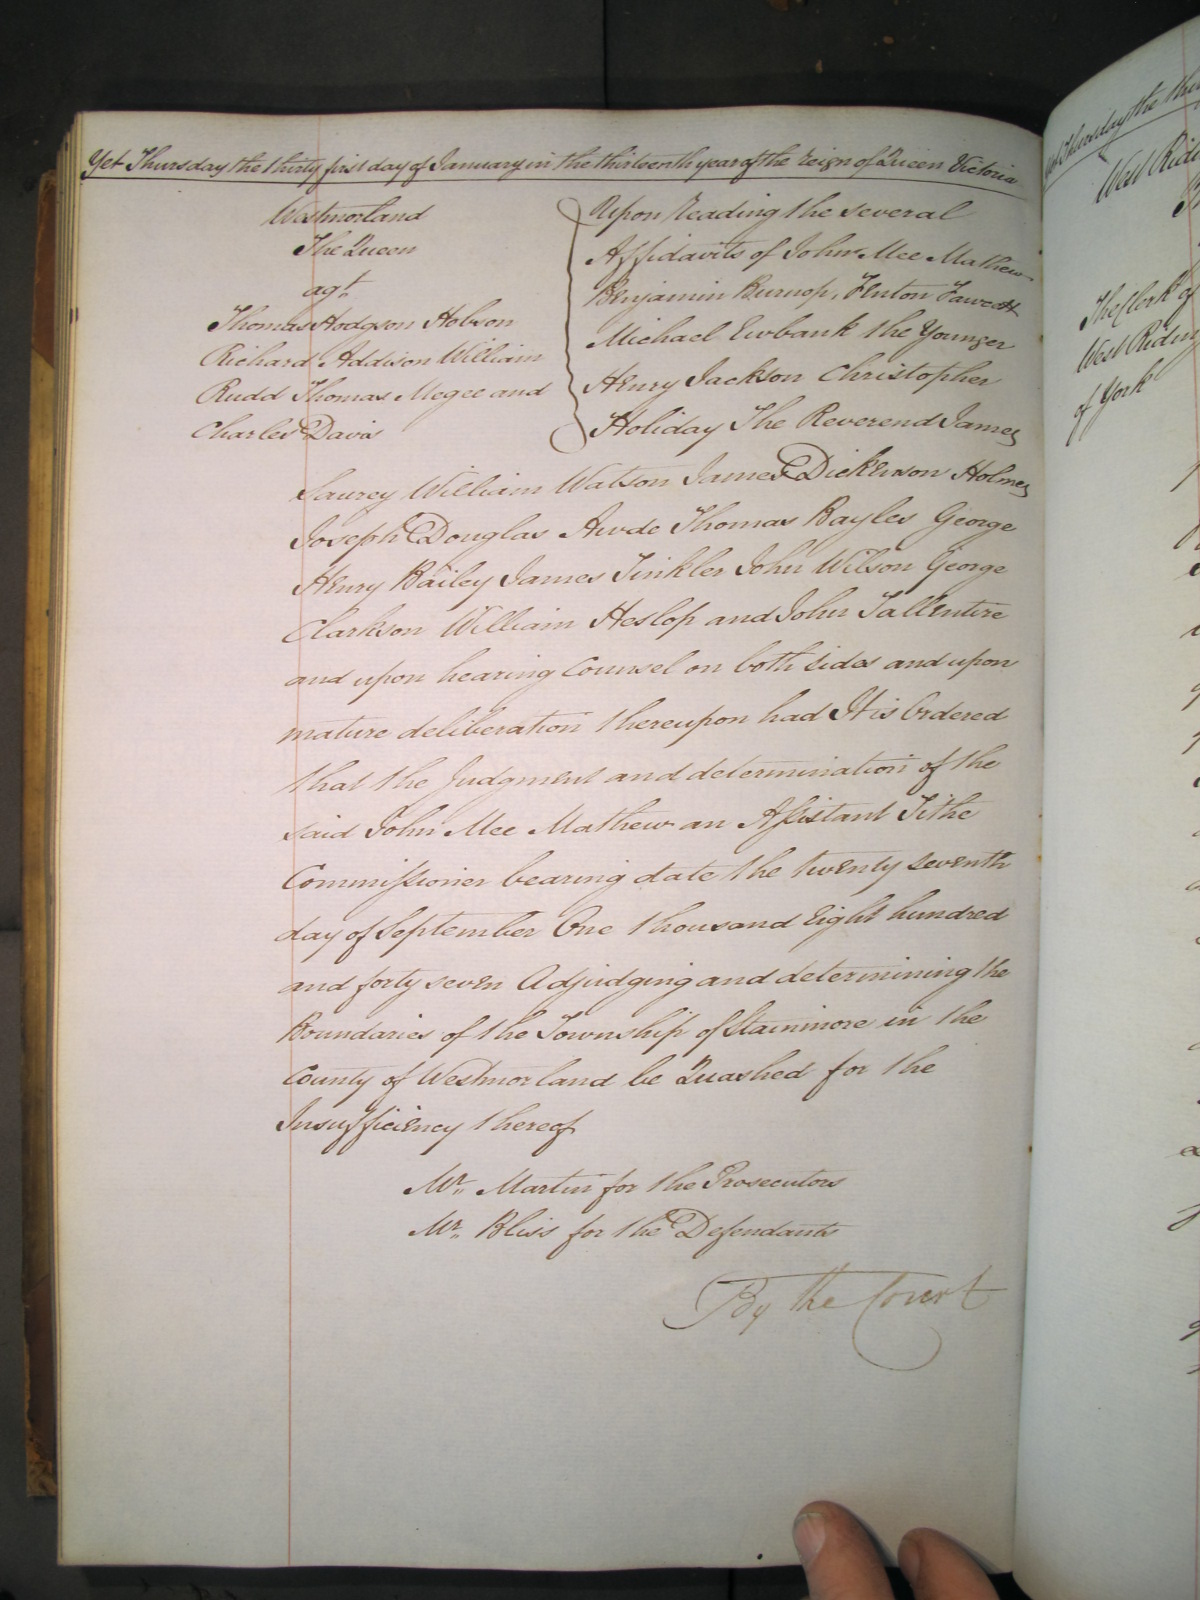 Yet Thursday the thirty first day of January in the thirteenth year of the reign of Queen Victoria
Westmorland
The Queen
agt.
Thomas Hodgson Hobson
Richard Addison William
Rudd Thomas Megee and
Charles Davis
Upon reading the several
Affidavits of John Mee Mathew
Benjamin Burnop, Fenton Fawcett
Michael Ewbank the Younger
Henry Jackson Christopher
Holiday The Reverend James
William Watson James Dickinson Holmes
Joseph Douglas Awde Thomas Bayles George
Henry Bailey James Tinkler John Wilson George
Clarkson William Heslop and John Tallentire
and upon hearing Counsel on both sides and upon
mature deliberation thereupon had It is Ordered
that the Judgment and determination of the
said John Mee Mathew an Assistant Tithe
Commissioner bearing date the twenty seventh
day of September One thousand Eight hundred
and forty seven Adjudging and determining the
Boundaries of the Township of Stainmore in the
County of Westmorland be Quashed for the
Insufficiency thereof
Mr. Martin for the Prosecutors
Mr. Bliss for the Defendants
By the Court
Thursday the
West Ridi
The Clerk of
West Riding
of York